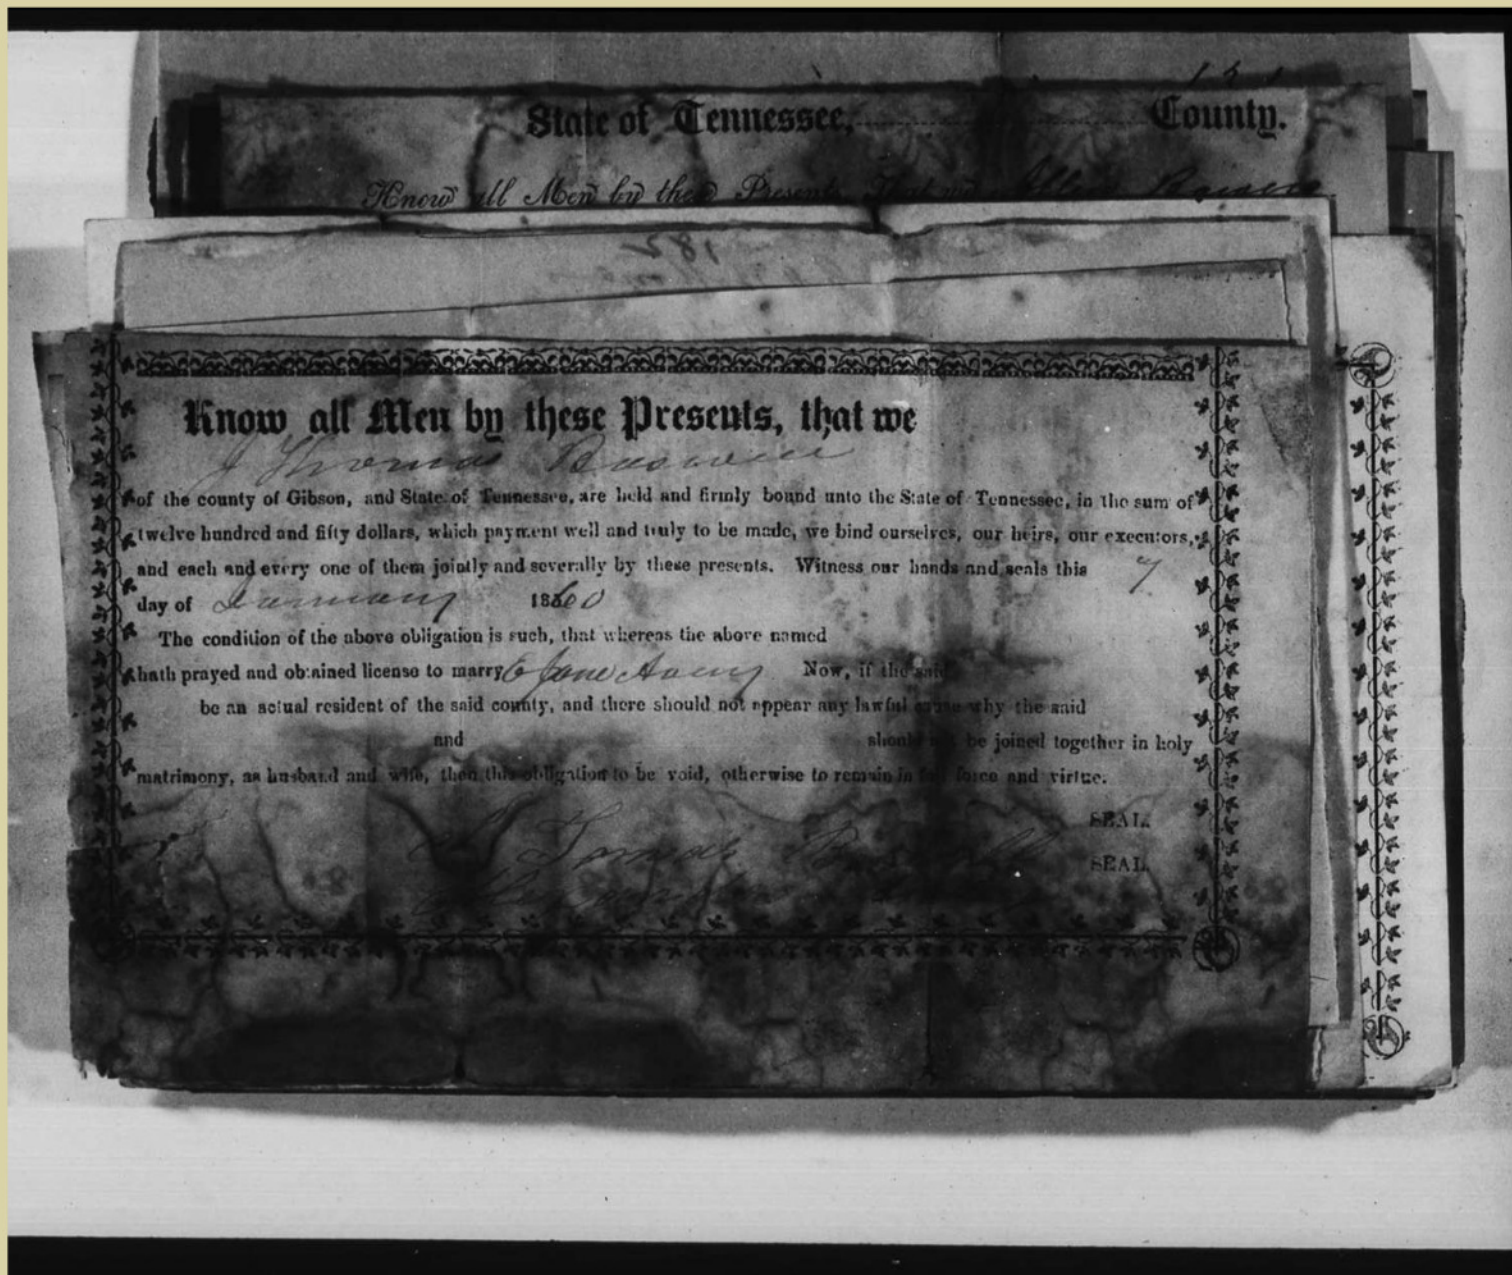 State of Tennessee, County.
Know all Men by these Presents, That we
182
Know all Men by these Presents, that we
J Thomas
of the county of Gibson, and State of Tennessee, are held and firmly bound unto the State of Tennessee, in the sum of
twelve hundred and fifty dollars, which payment well and truly to be made, we bind ourselves, our heirs, our executors,
and each and every one of them jointly and severally by these presents. Witness our hands and seals this 7
day of January 1860
The condition of the above obligation is such, that whereas the above named
hath prayed and obtained license to marry E Jane Avery Now, if the said
be an actual resident of the said county, and there should not appear any lawful cause why the said
and should not be joined together in holy
matrimony, as husband and wife, then this obligation to be void, otherwise to remain in full force and virtue.
SEAL.
SEAL.